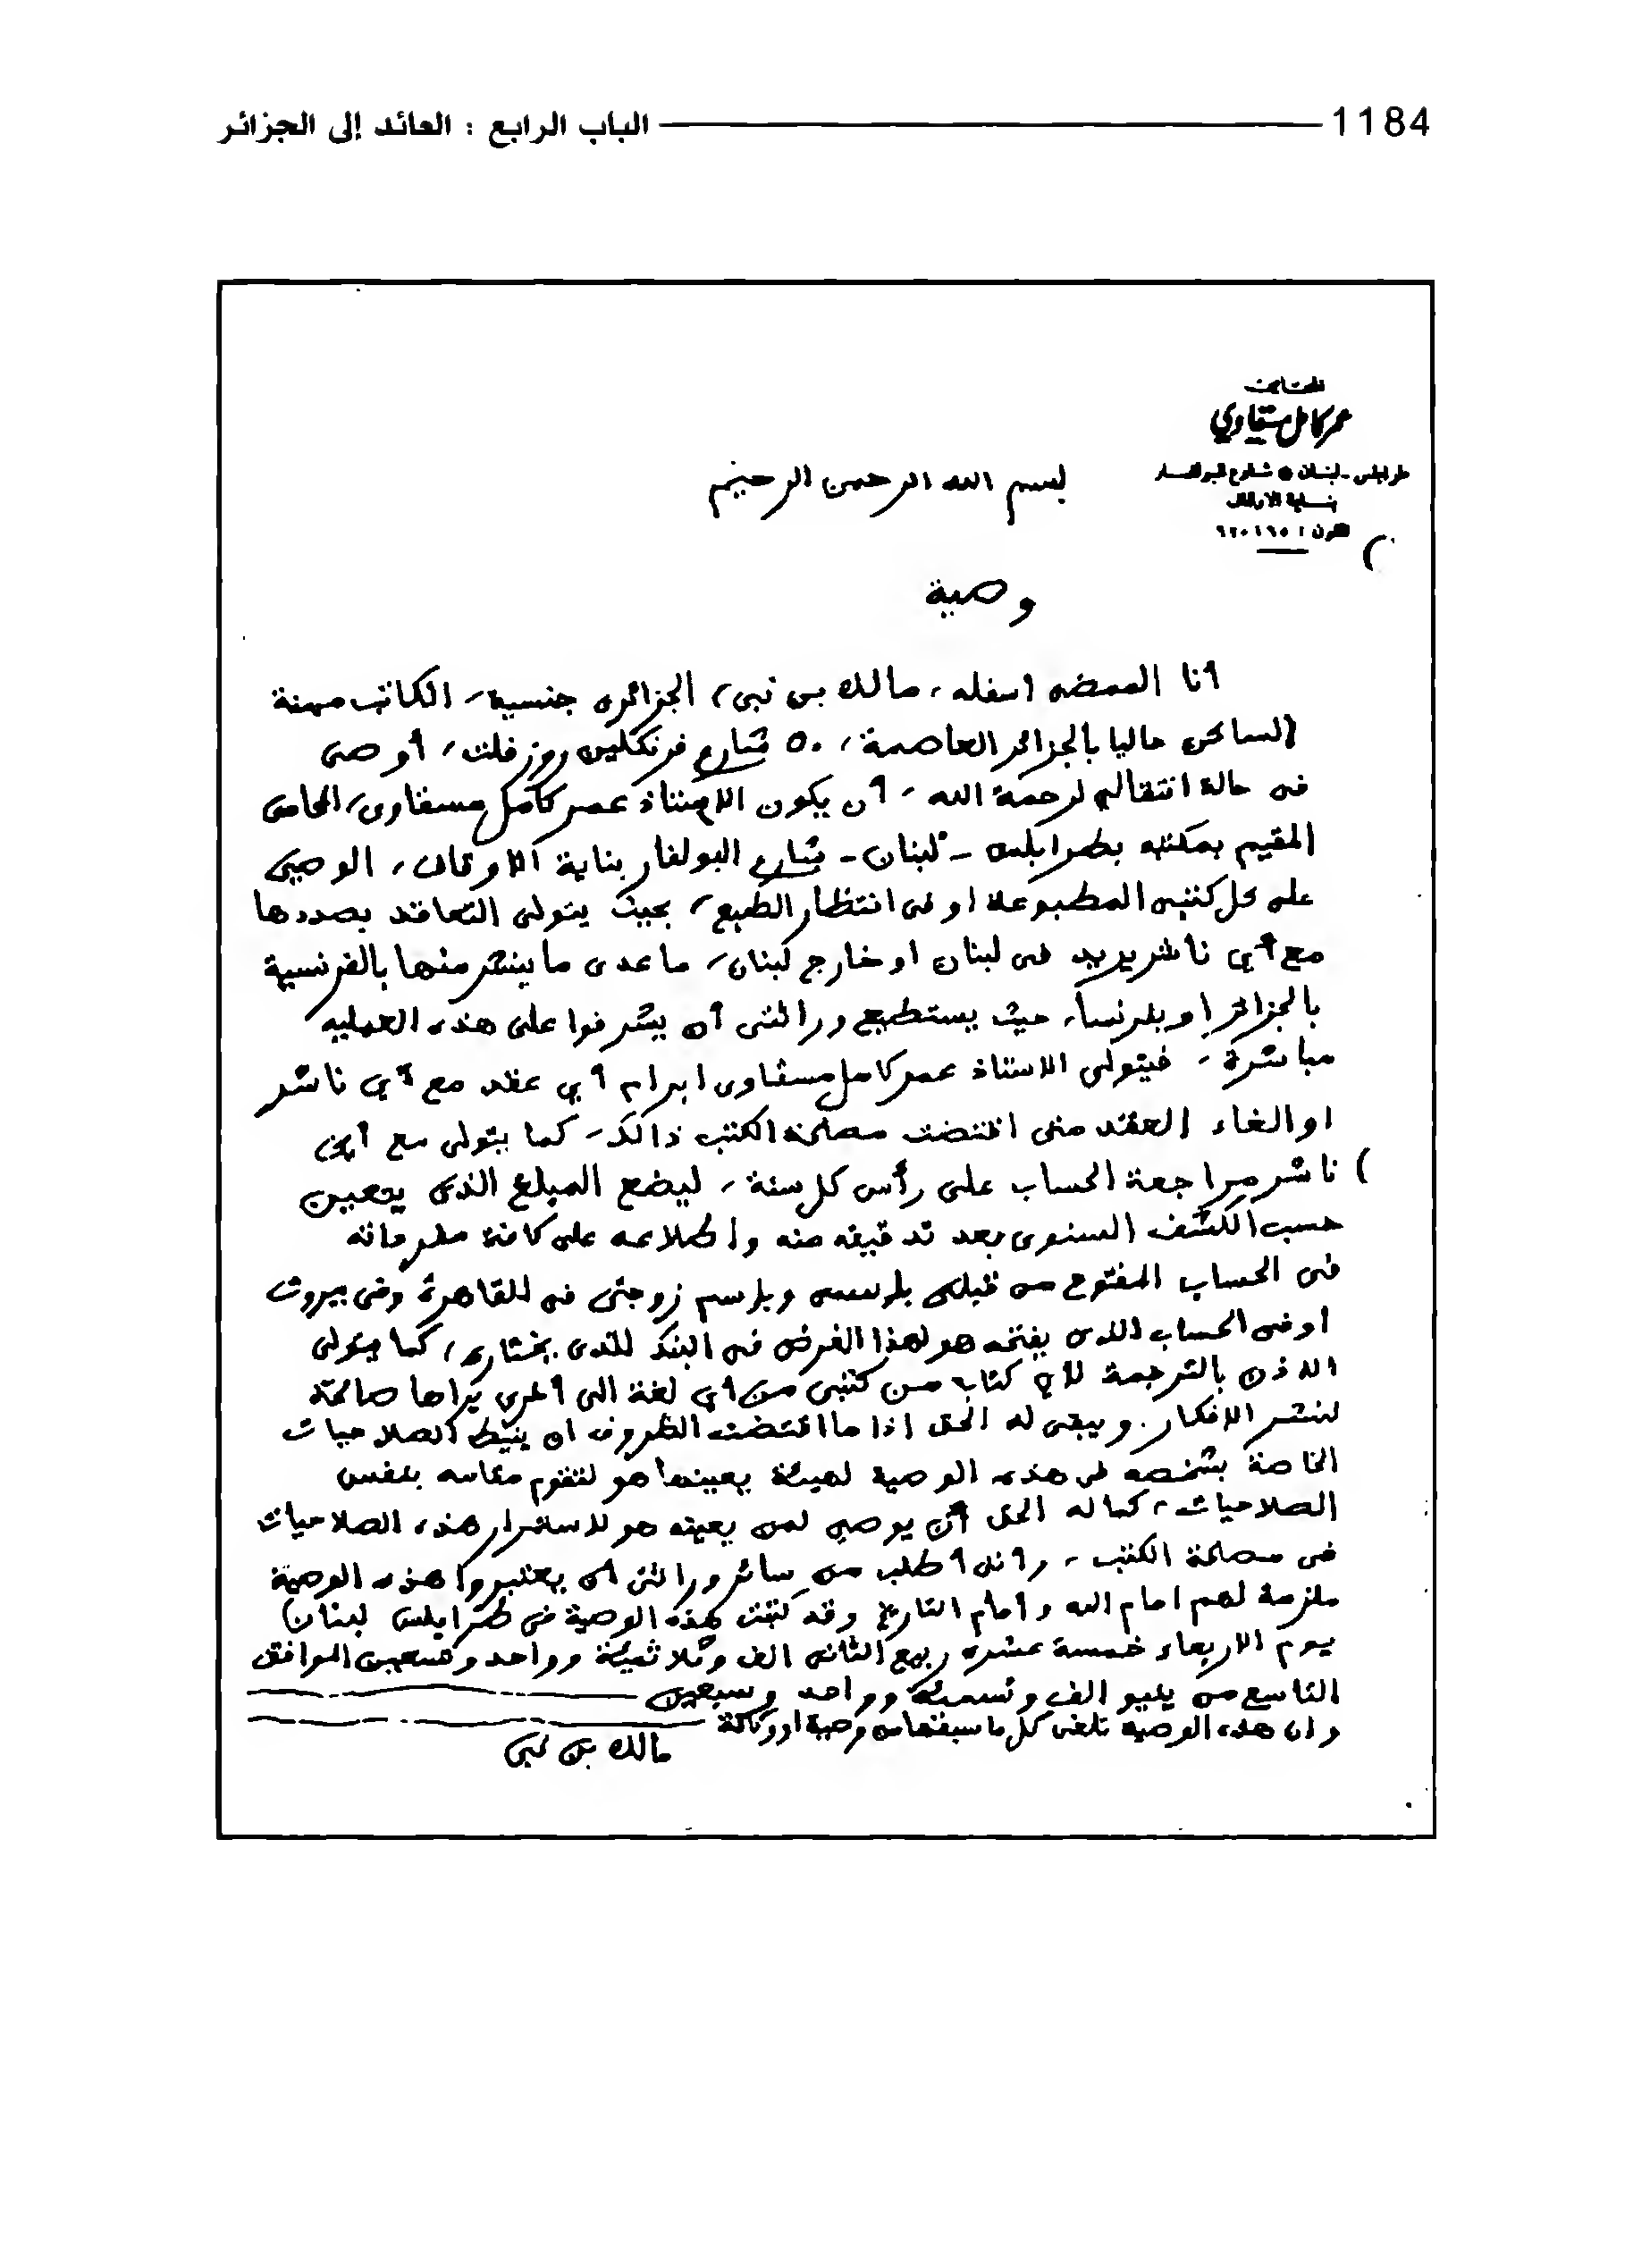 1184 الباب الرابع : العائد إلى الجزائر
المحامي
عمر كامل مسقاوي
طرابلس - لبنان • شارع البولفار
بناية الاوقاف
تلفون : ٦٢٠١٦٥
بسم الله الرحمن الرحيم
وصية
أنا الممضى اسفله، مالك بن نبي، الجزائرى جنسية، الكاتب مهنة
الساكن حاليا بالجزائر العاصمة، ٥٠ شارع فرنكلين روزفلت، أوصى
فى حالة انتقالى لرحمة الله، أن يكون الاستاذ عمر كامل مسقاوى، المحامى
المقيم بمكتبه بطرابلس - لبنان - شارع البولفار بناية الاوقاف، الوصيى
على كل كتبى المطبوعة او فى انتظار الطبع، بحيث يتولى التعاقد بصددها
مع أي ناشر يريد فى لبنان او خارج لبنان، ما عدى ما ينشر منها بالفرنسية
بالجزائر او بفرنسا، حيث يستطيع ورائتى أن يشرفوا على هذه العمليه
مباشرة، فيتولى الاستاذ عمر كامل مسقاوى ابرام أي عقد مع أي ناشر
او الغاء العقد متى اقتضت مصلحة الكتب ذالك، كما يتولى مع أي
ناشر مراجعة الحساب على رأس كل سنة، ليضع المبلغ الذى يتعين
حسب الكشف السنوى بعد تدقيقه منه واطلاعه على كافة
فى الحساب المفتوح من قبلى بإسمى وبإسم زوجتى فى القاهرة وفى بيروت
او فى الحساب الذى يفتحه هو لهذا الغرض فى البنك الذى يختاره، كما يتولى
الاذن بالترجمة لأي كتاب من كتبى من أي لغة الى أخرى يراها صالحة
لنشر الافكار. ويبقى له الحق اذا ما اقتضت الظروف ان ينيط الصلاحيات
الخاصة بشخصه فى هذه الوصية لهيئة يعينها هو لتقوم مقامه بنفس
الصلاحيات، كما له الحق أن يوصي لمن يعينه هو لاستمرار هذه الصلاحيات
فى مصلحة الكتب، وأننى أطلب من سائر ورائتى أن يعتبروا هذه الوصية
ملزمة لهم امام الله وأمام التاريخ وقد كتبت هذه الوصية فى طرابلس لبنان
يوم الاربعاء خمسة عشره ربيع الثانى الف وثلاثمئة وواحد وتسعين الموافق
التاسع من يليو الف وتسمئة وواحد وسبعين
وان هذه الوصية تلغى كل ما سبقها من وصية او وكالة
مالك بن نبى